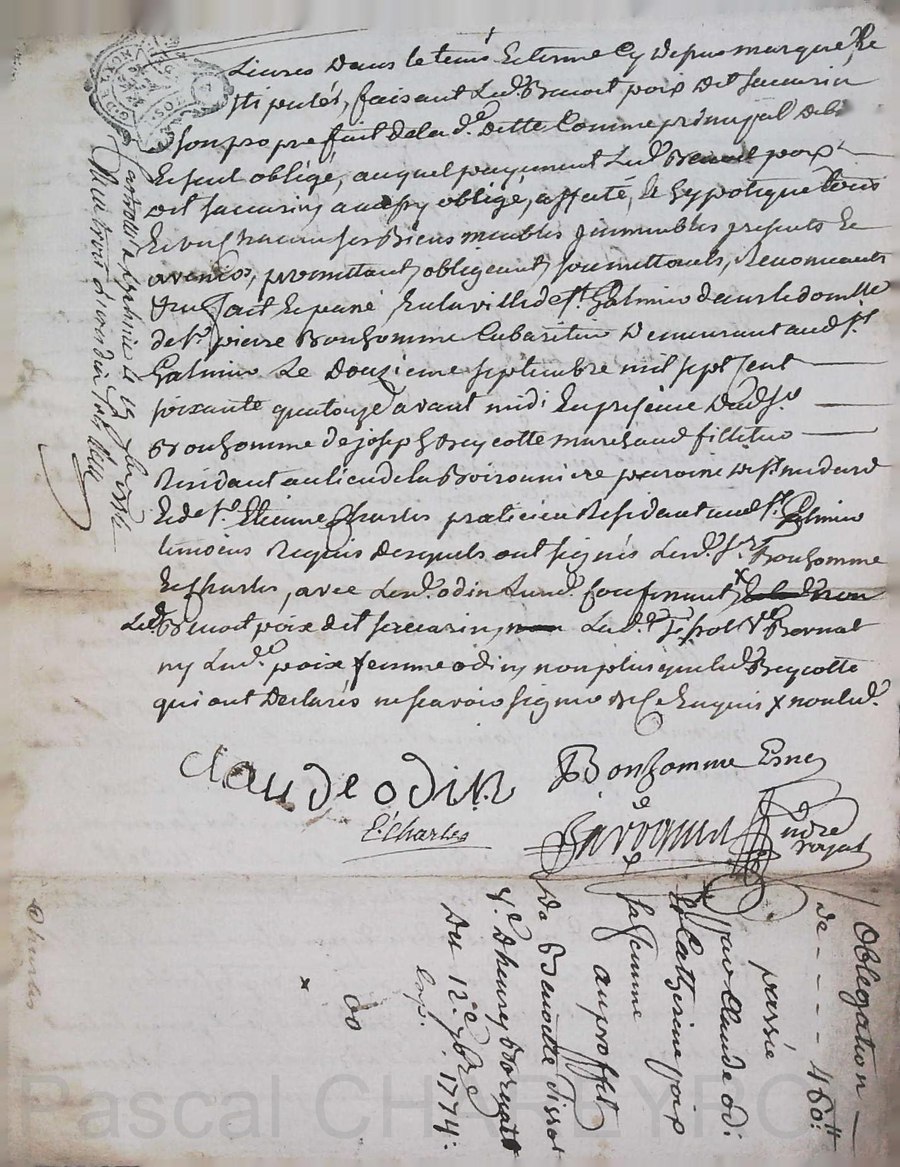 Livres Dans le tems Et terme Cy depuis marque, Et
stipulés, faisant Led. Benoit poix dit saccarin
son propre fait de lad.e dette Comme principal debi
Et seul obligé, auquel payement Led. Benoit poix
dit saccarin obligé, affecté, & hypotequé tous
Et un Chacun ses Biens meubles immeubles presents Et
avenirs, promettant, obligeant, soumettants, Renonceants
fait Et passé En la ville de St. Galmier dans le domille
de Sr. pierre Bonhomme Cabaretier Demeurant aud. St
Galmier Le Douzieme septembre mil sept Cent
soixante quatorze avant midi En presence Dud. Sr.
Bonhomme de joseph Breycotte marchand
Residant au lieu de la Boironniere paroisse de St. medard
Et de Sr. Etienne Charles praticien Residant aud. St. Galmier
temoins Requis Lesquels ont signés Led. Sr. Bonhomme
Et Charles, avec Led. odin
Led. Benoit poix dit saccarin, Lad.e Tissot Ve. Bornat
ny Lad.e poix femme odin, non plus que led. Breycotte
qui ont Declarés ne scavoir signer de Ce Enquis x non led.
Claude odin
Bonhomme Esné
E. Charles
nore
royal
Obligation
de - - - - 460tt
passée
par Claude odi
Et Catherine poix
sa femme
au proffit
De Benoitte Tissot
Ve. Dheury Bornat
Du 12e. 7bre 1774.
Exp.
do
x
Charles
Pascal CHAREYRO